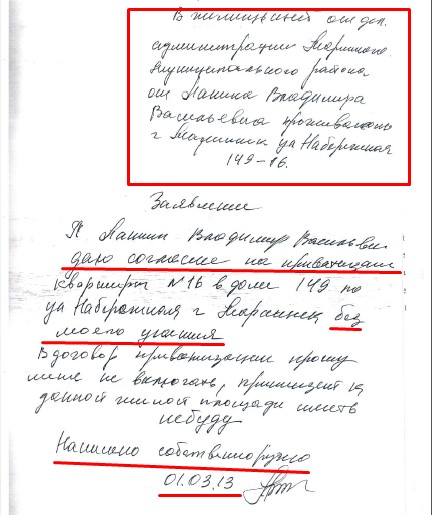 В жилищный отдел.
администрации Мариинского
Муниципального района
от Лапина Владимира
Васильевича проживающ
г Мариинск ул Набережная
149-16.
Заявление
Я Лапин Владимир Васильевич
даю согласие на приватизацию
квартиры №16 в доме 149 по
ул Набережная г Мариинск без
моего участия
В договор приватизации прошу
меня не включать, претензий на
данной жилой площади иметь
небуду
Написано собственноручно
01.03.13